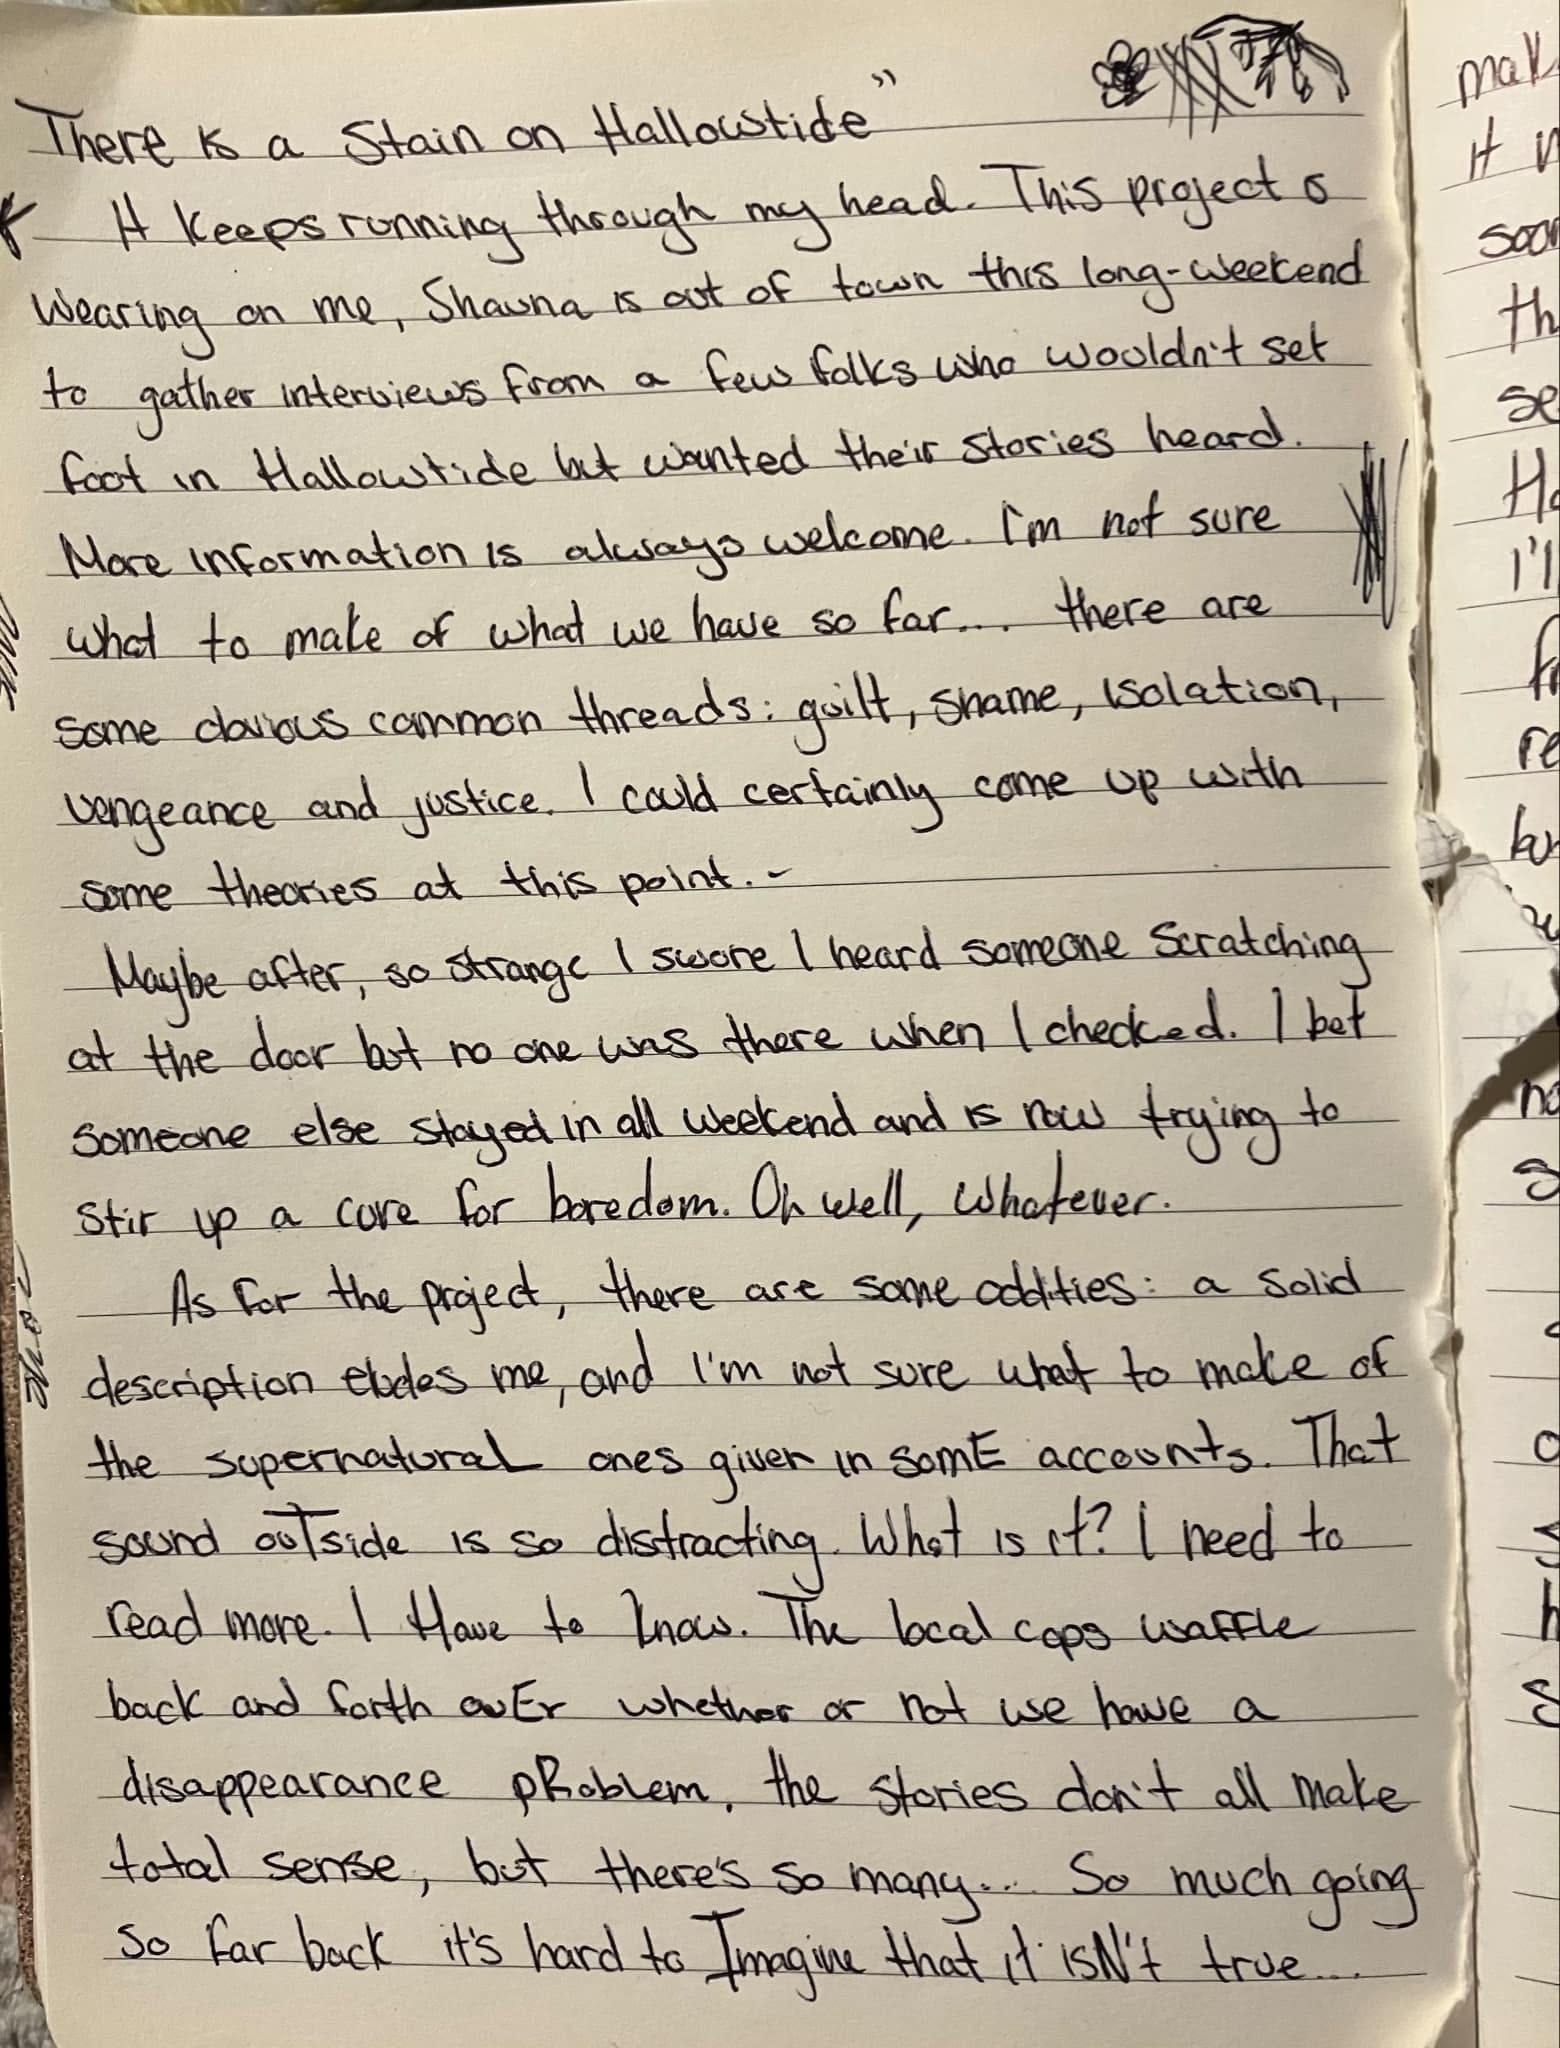 There is a Stain on Hallowstide"
It keeps running through my head. This project is
wearing on me, Shauna is out of town this long-weekend
to gather interviews from a few folks who wouldn't set
foot in Hallowstide but wanted their stories heard.
More information is always welcome. I'm not sure
what to make of what we have so far... there are
some obvious common threads: guilt, shame, isolation,
vengeance and justice. I could certainly come up with
some theories at this point. -
Maybe after, so strange I swore I heard someone scratching
at the door but no one was there when I checked. I bet
someone else stayed in all weekend and is now trying to
stir up a cure for boredom. Oh well, whatever.
As for the project, there are some oddities: a solid
description eludes me, and I'm not sure what to make of
the supernaturaL ones given in somE accounts. That
sound ouTside is so distracting. What is it? I need to
read more. I Have to know. The local cops waFFLe
back and forth ovEr whether or not we have a
disappearance pRobLem, the stories don't all make
total sense, but there's so many... So much going
so far back it's hard to Imagine that it isN't true...
mak
it
soon
th
se
Ho
I'll
re
no